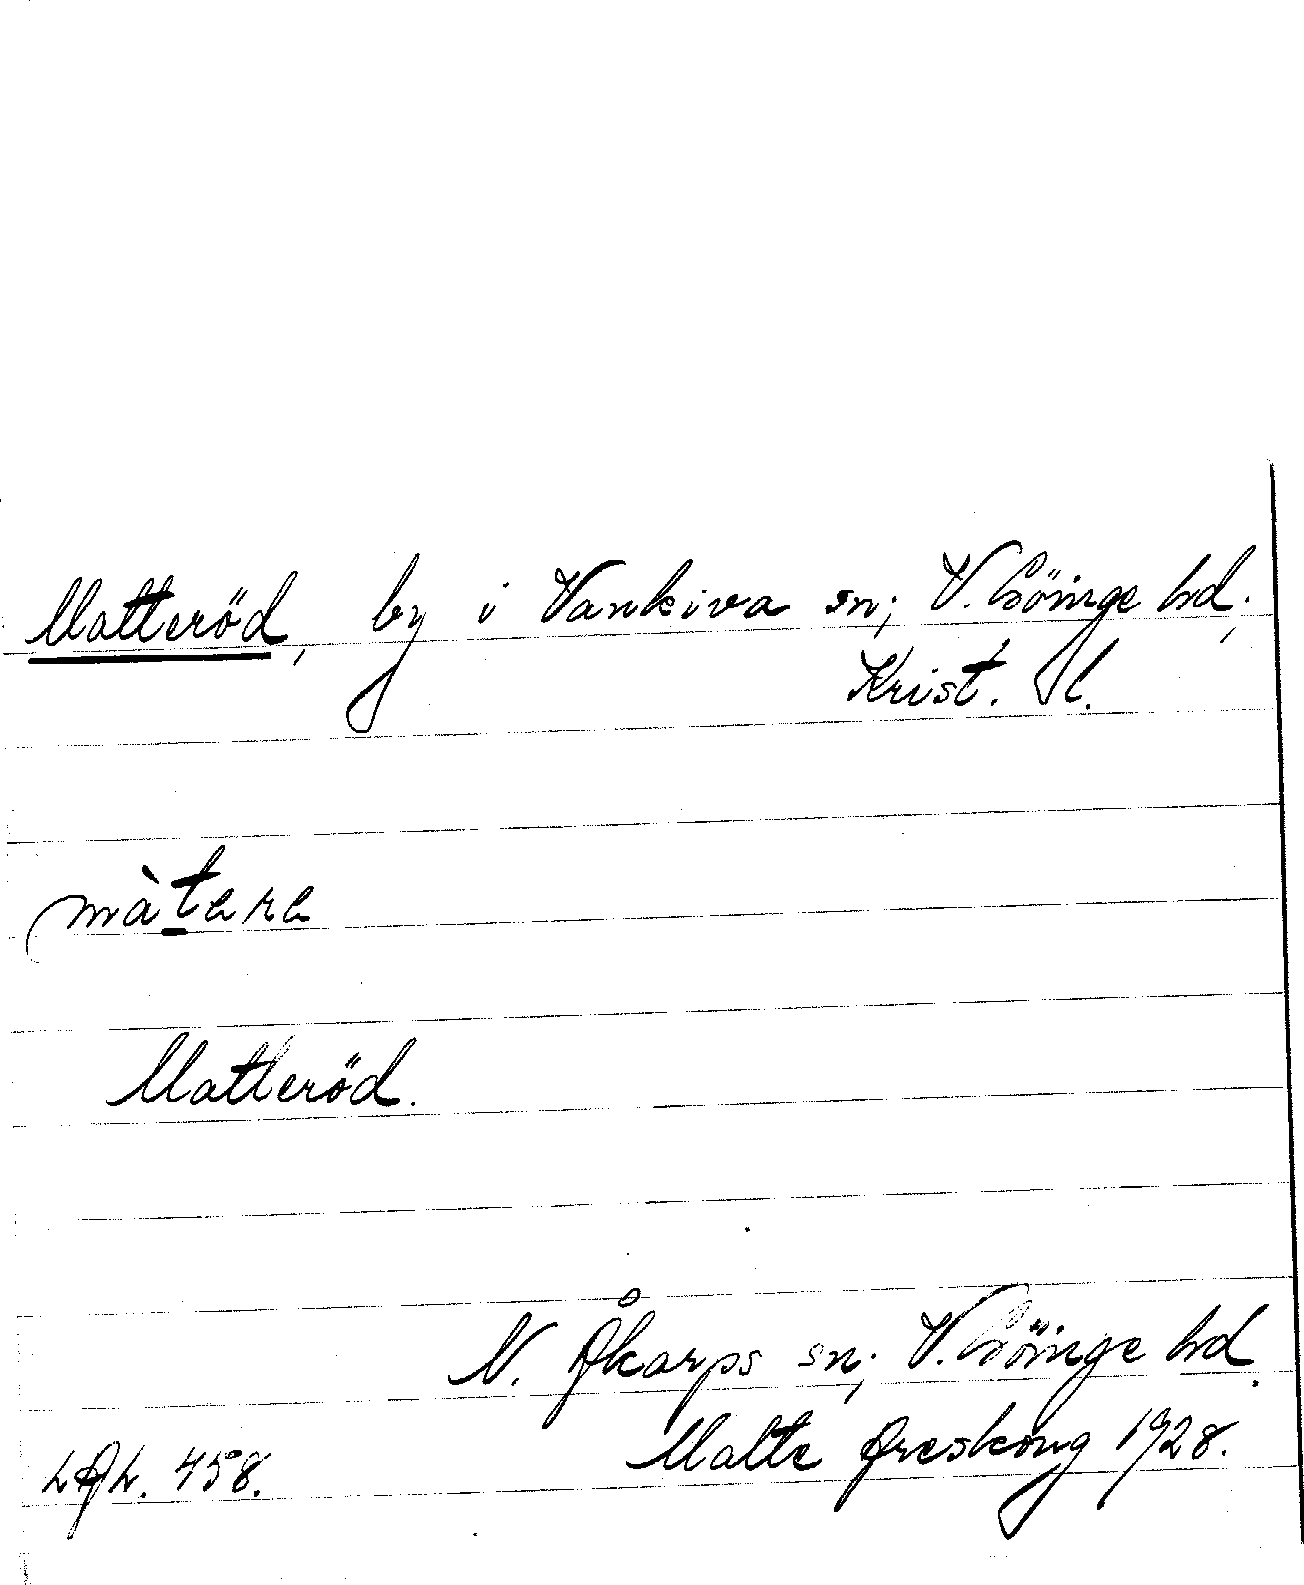 Matteröd, by i Vankiva sn; V. Göinge hd.,
Krist. l.
màtere
Matteröd.
N. Åkarps sn; V. Göinge hd.
Malte Areskoug 1928.
LAL. 458.